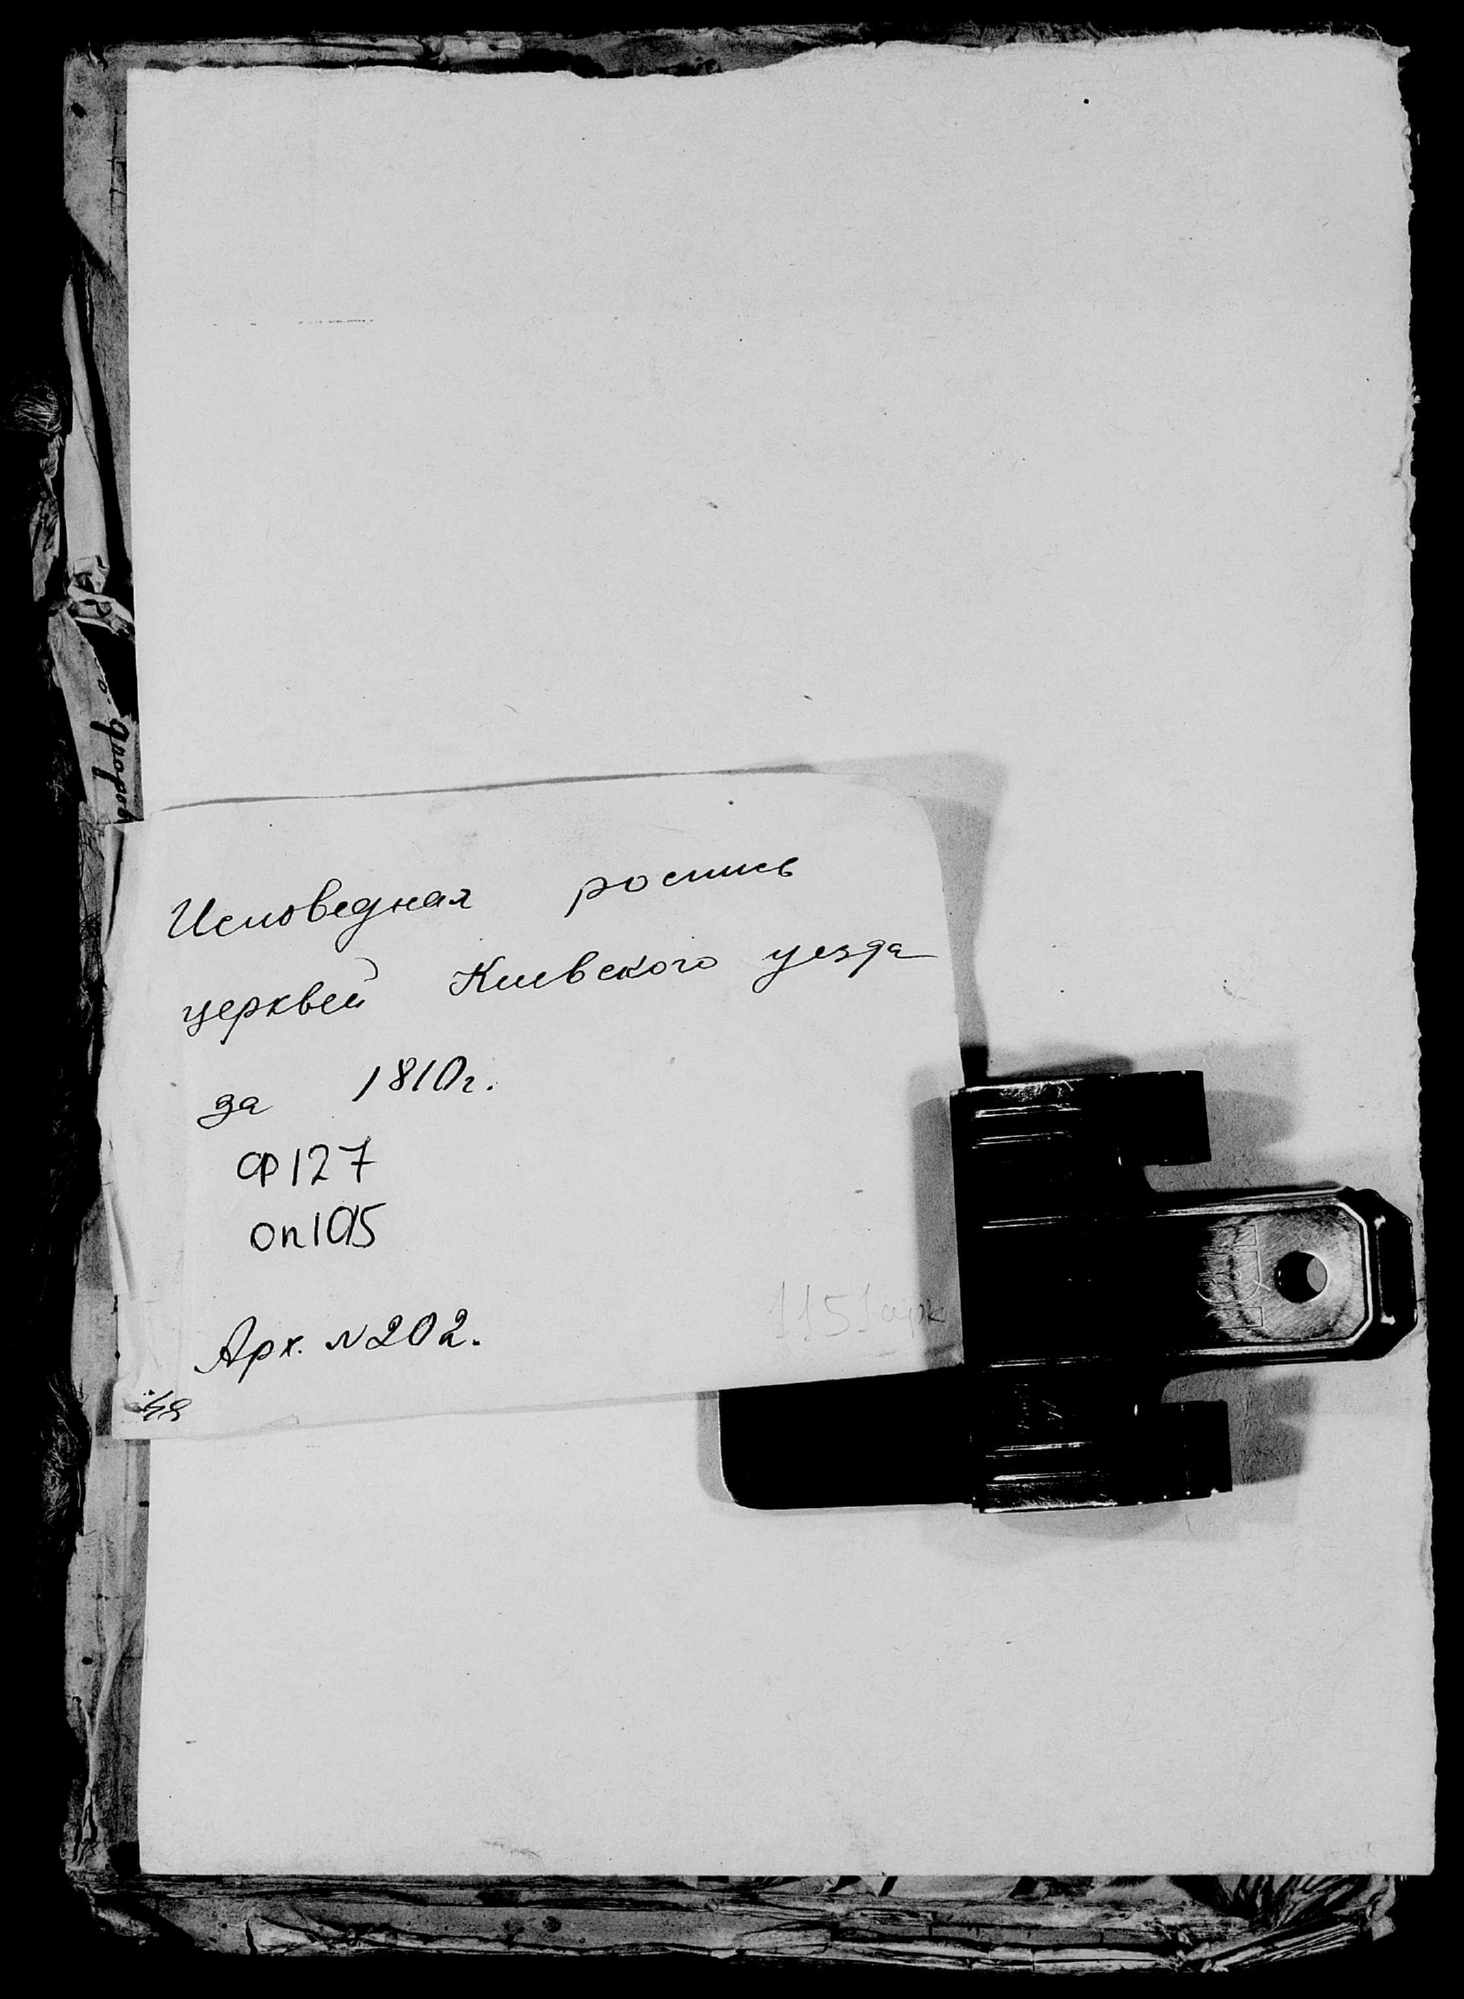 Исповедная роспись
церквей Киевского уезда
за 1810г.
ф127
оп1015
Арх. №202.
1151арк